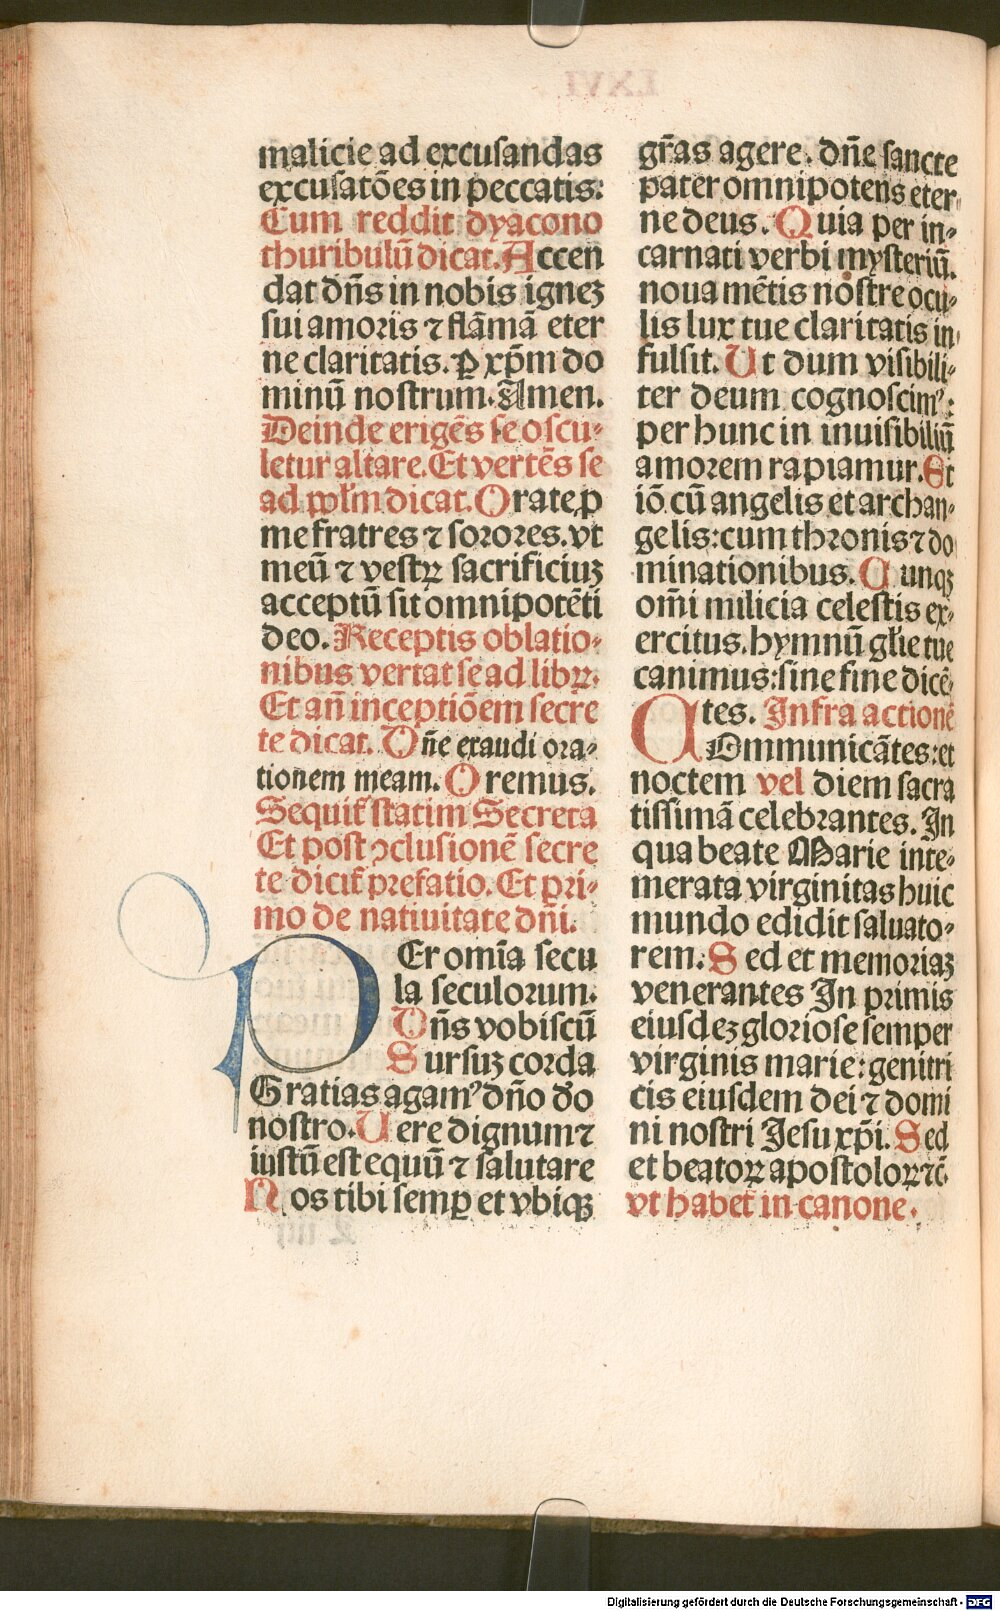 malicie ad excusandas
excusatōes in peccatis:
Cum reddit dyacono
thuribulū dicat. Accen
dat dn̄s in nobis ignez
sui amoris ⁊ flāmā eter
ne claritatis. P̲ xp̄m do
minū nostrum. Amen.
Deinde erigēs se oscu-
letur altare. Et vertēs se
ad pp̄lm dicat. Orate p̲
me fratres ⁊ sorores. vt
meū ⁊ vestrꝝ sacrificiuz
acceptū sit omnipotēti
deo. Receptis oblatio-
nibus vertat se ad librꝝ.
Et an̄ inceptiōem secre
te dicat. Dn̄e exaudi ora-
tionem meam. Oremus.
Sequit᷑ statim Secreta
Et post ↄclusionē secre
te dicit᷑ prefatio. Et pri-
mo de natiuitate dn̄i.
PEr om̄ia secu
la seculorum.
Dn̄s vobiscū
Sursuz corda
Gratias agamꝰ dn̄o do
nostro. Uere dignum ⁊
iustū est equū ⁊ salutare
Nos tibi semp̲ et vbiqꝫ
gr̄as agere. dn̄e sancte
pater omnipotens eter-
ne deus. Quia per in-
carnati verbi mysteriū.
noua mētis nostre ocu-
lis lux tue claritatis in-
fulsit. Ut dum visibili-
ter deum cognoscimꝰ:
per hunc in inuisibiliū
amorem rapiamur. Et
iō cū angelis et archan-
gelis: cum thronis ⁊ do
minationibus. Cunqꝫ
om̄i milicia celestis ex-
ercitus. hymnū gl̄ie tue
canimus: sine fine dicē-
tes. Infra actionē
COmmunicātes: et
noctem vel diem sacra
tissimā celebrantes. In
qua beate Marie inte-
merata virginitas huic
mundo edidit saluato-
rem: Sed et memoriaz
venerantes In primis
eiusdez gloriose semper
virginis marie: genitri
cis eiusdem dei ⁊ domi
ni nostri Jesu xp̄i. Sed
et beatoꝝ apostoloꝝ ⁊c̄.
vt habet᷑ in canone.
Digitalisierung gefördert durch die Deutsche Forschungsgemeinschaft - DFG